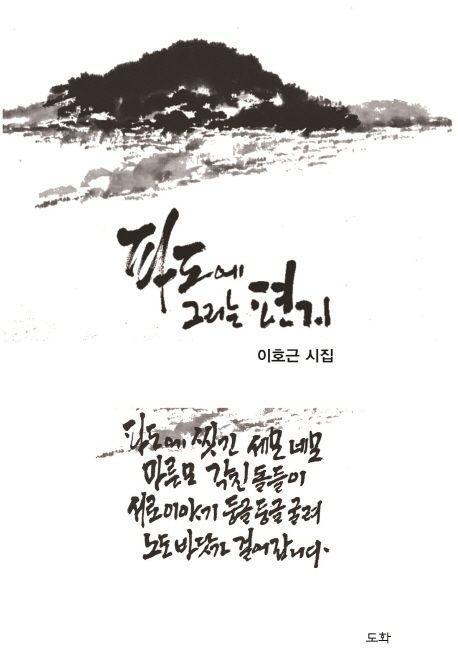 파도에
그리는 편지
이호근 시집
파도에 씻긴 세모 네모
마루모 각진 돌들이
서로이야기 둥글둥글 굴려
노도 바닷가 걸어갑니다.
도화